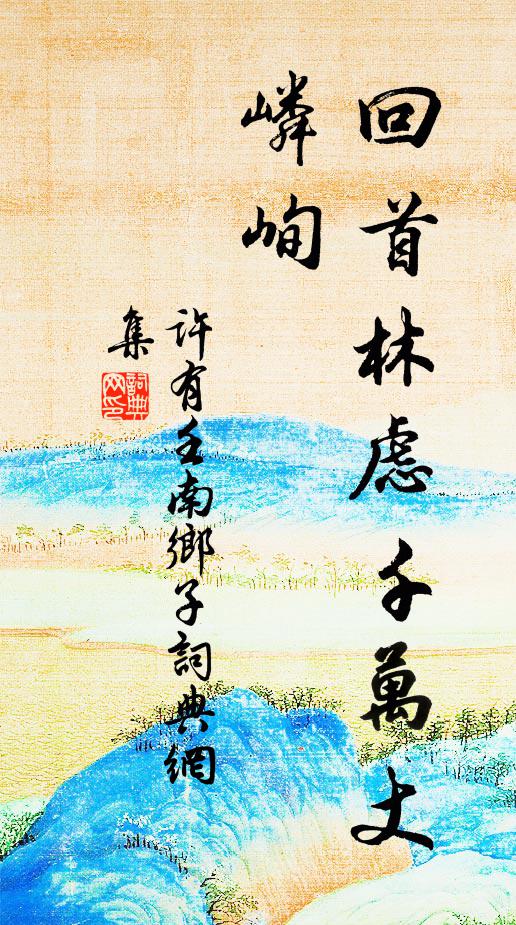 回首林慮千萬丈
嶙峋
許有壬南鄉子詞典網
集
詞典網印